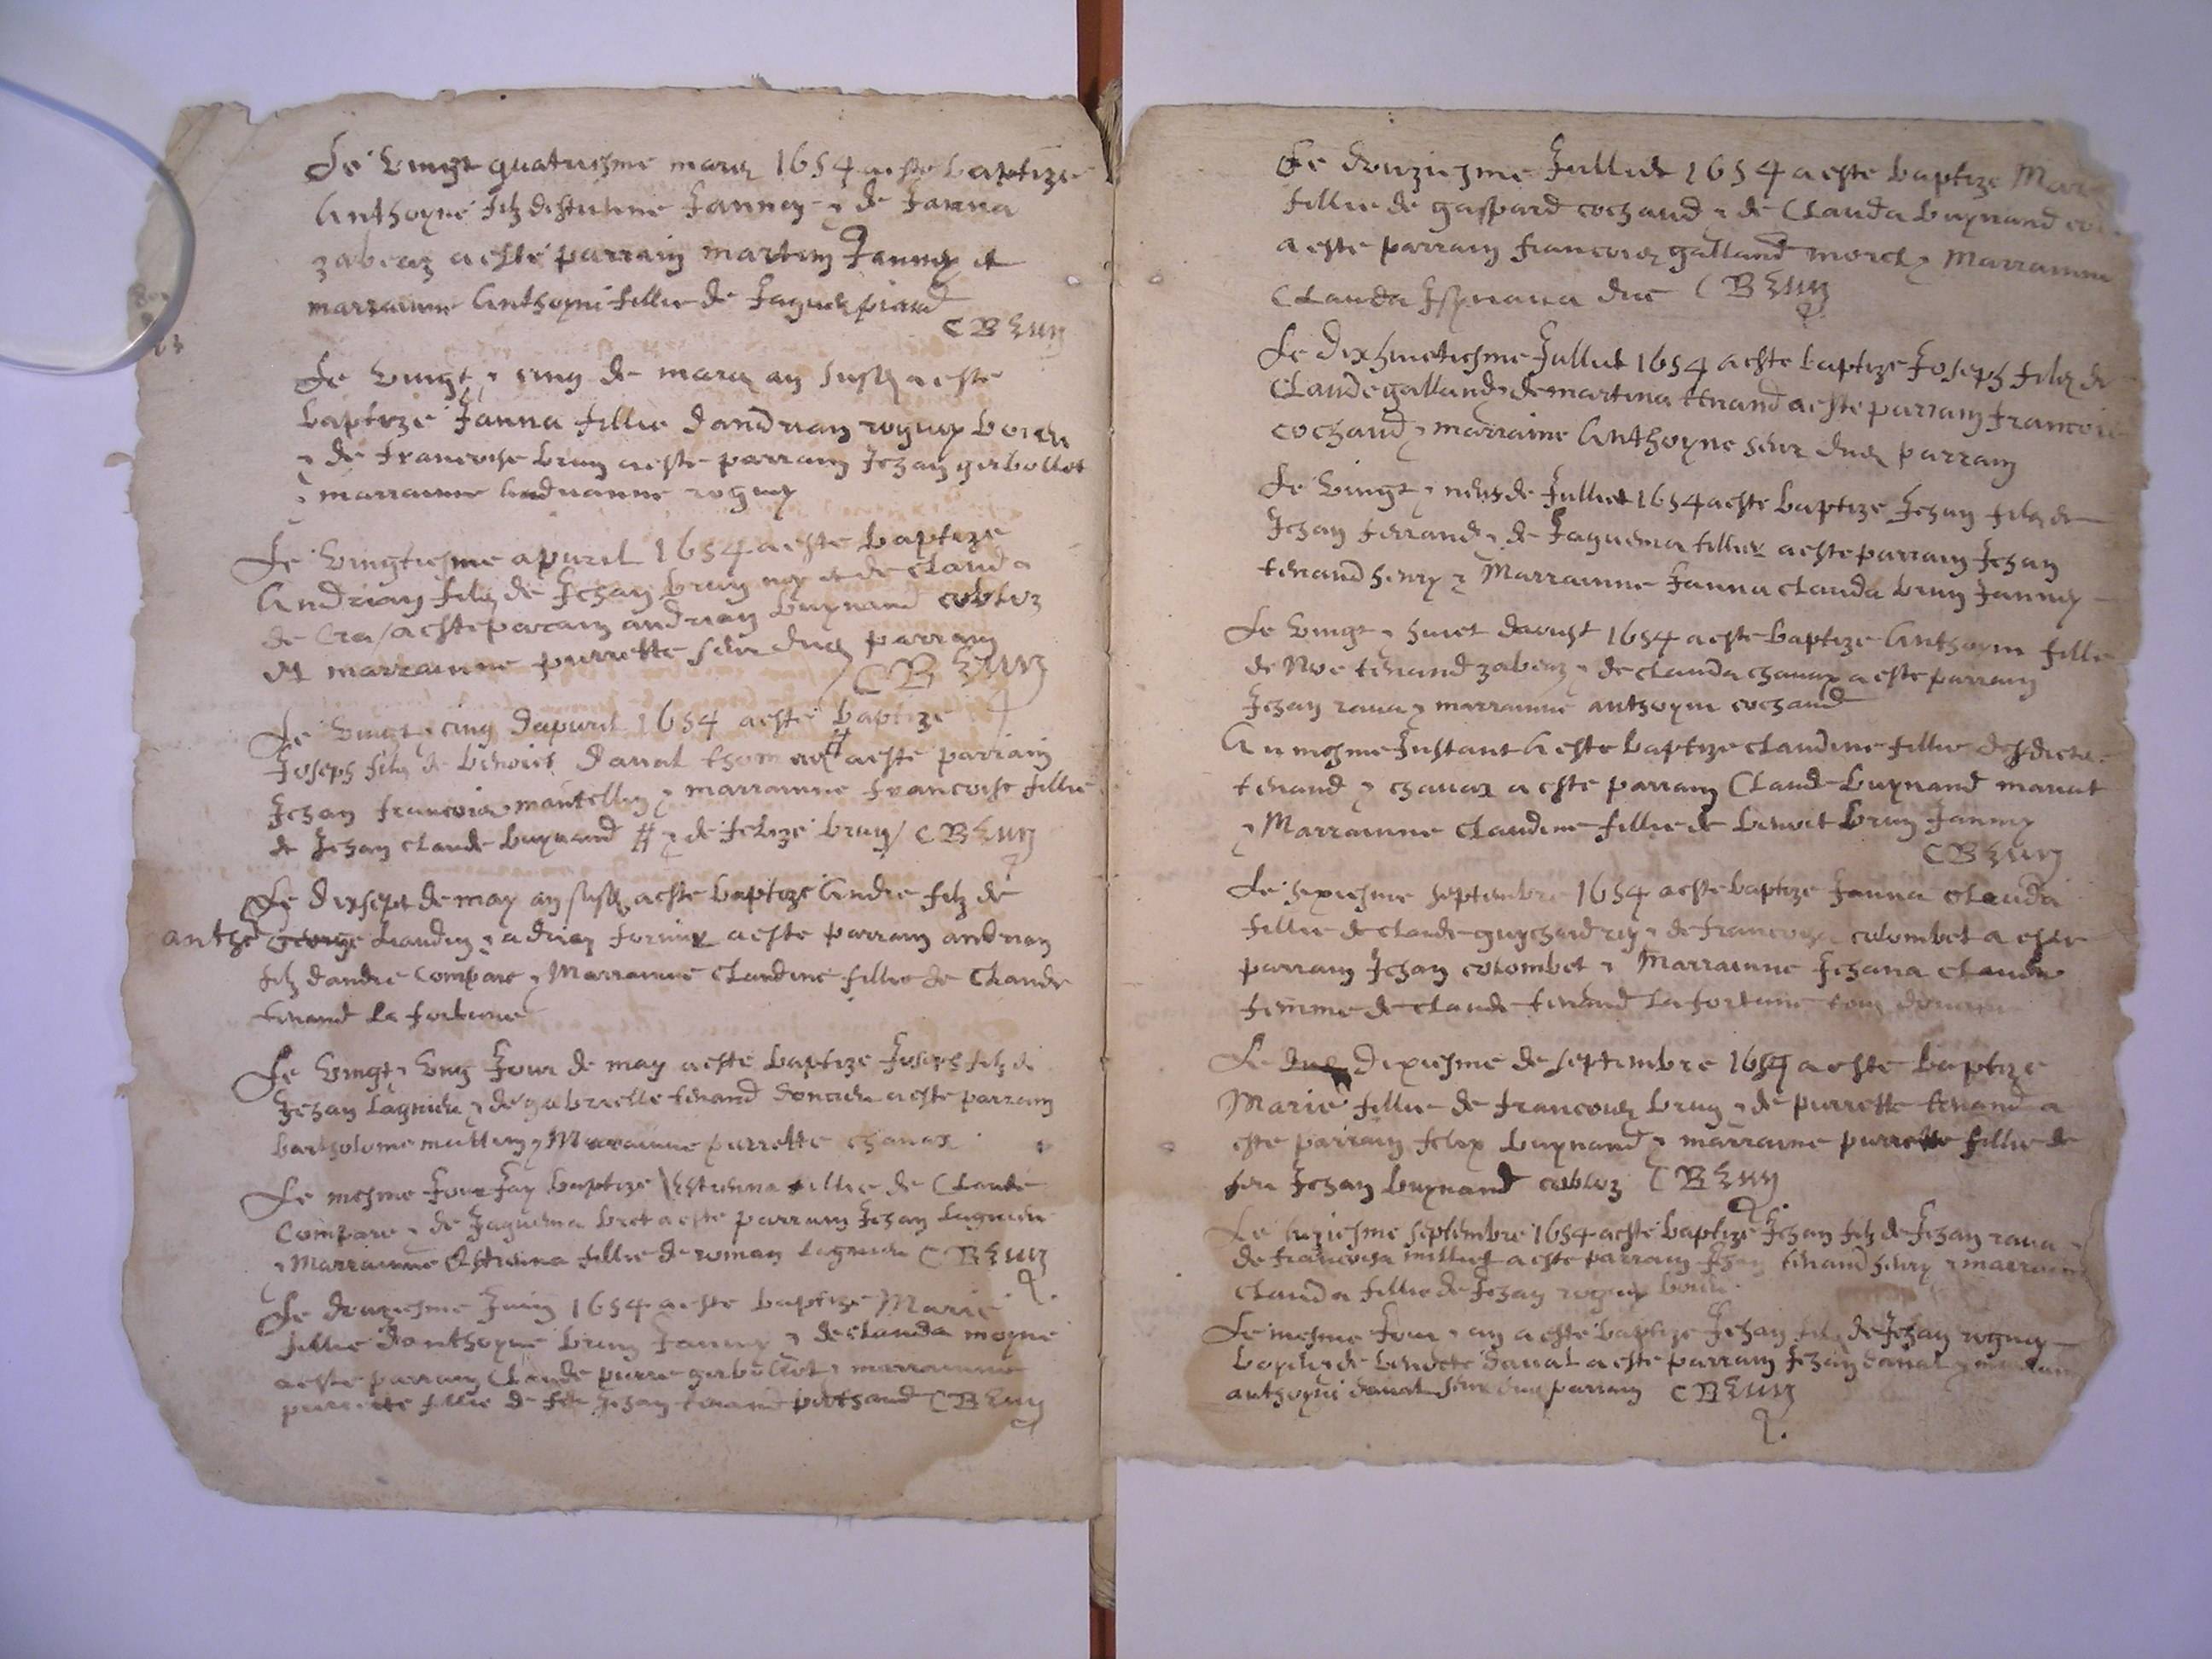 Le vingt quatriesme mars 1654 a este baptize
Anthoyne filz destienne Janney & de Janna
zabeaz a este parrain martin Janney et
marrainne Anthoyni fillie de Jaques piard
C Brun
Le vingt & cinq de mars an susd a este
baptize Janna fillie dandrian roguey
& de francoise brun a este parrain Jehan gerbollot
& marrainne Andrianne roguey
Le vingtiesme apvril 1654 a este baptize
Andrian filz de Jehan brun ney et de Clauda
de Cra / a este parain andrian buynand cobloz
et marrainne pierrette seur dud parrain
C Brun
Le vingt & cinq dapvril 1654 a este baptize
Joseph filz de benoict daual # a este parrain
Jehan francois mantellin & marrainne francoise fillie
de Jehan Claude buynand # & de felize brun / C Brun
Le dixsept de may an susd a este baptize Andre filz de
anthe George Liaudin & a este parrain andrian
filz dandre Compare & Marrainne Claudine fillie de Claude
tenand la fortune
Le vingt & ung Jour de may a este baptize Joseph filz de
Jehan Lagnieu & de gabrielle tenand a este parrain
bartholome muttin & Marrainne pierrette chanax
Le mesme Jour Jay baptize Estienna fillie de Claude
Compare & de Jaquema bret a este parrain Jehan Lagnieu
& Marrainne Estienna fillie de roman Lagnieu C Brun
Le douziesme Juin 1654 a este baptize Marie
fillie danthoyne brun Janney & de Clauda moyne
a este parrain Claude pierre gerbollot & marrainne
pierrette fillie de feu Jehan tenand C Brun
Le douziesme Jullict 1654 a este baptize
fillie de gaspard cochaud & de Clauda buynand
a este parrain francois galland & Marrainne
Clauda C Brun
Le dixhuictiesme Jullict 1654 a este baptize Joseph filz de
Claude galland & de martina tenand a este parrain francois
cochaud & marraine Anthoyne seur dud parrain
Le vingt & neuf de Jullict 1654 a este baptize Jehan filz de
Jehan & de Jaquema a este parrain Jehan
tenand henry & Marrainne Janna Clauda brun Janney
Le vingt & huict daoust 1654 a este baptize Anthoyni fillie
de Noe tenand zabeaz & de Clauda chanax a este parrain
Jehan raua & marrainne anthoyni cochaud
Au mesme Instant A este baptize Claudine fillie desdicts
tenand & chanax a este parrain Claude buynand
& Marrainne Claudine fillie de benoit brun Janney
C Brun
Le septembre 1654 a este baptize Janna Clauda
fillie de Claude & de francoise colombet a este
parrain Jehan colombet & Marrainne Jehana Clauda
femme de Claude tenand La fortune
Le dixiesme de septembre 1654 a este baptize
Marie fillie de francois brun & de pierrette tenand a
este parrain felix buynand & marraine pierrette fillie de
feu Jehan buynand cobloz C Brun
Le septembre 1654 a este baptize Jehan filz de Jehan raua &
de francoise a este parrain Jehan tenand henry & marrainne
Clauda fillie de Jehan roguey
Le mesme Jour & an a este baptize Jehan filz de Jehan roguey
& de benoicte daual a este parrain Jehan daual &
anthoyni daual seur dud parrain C Brun